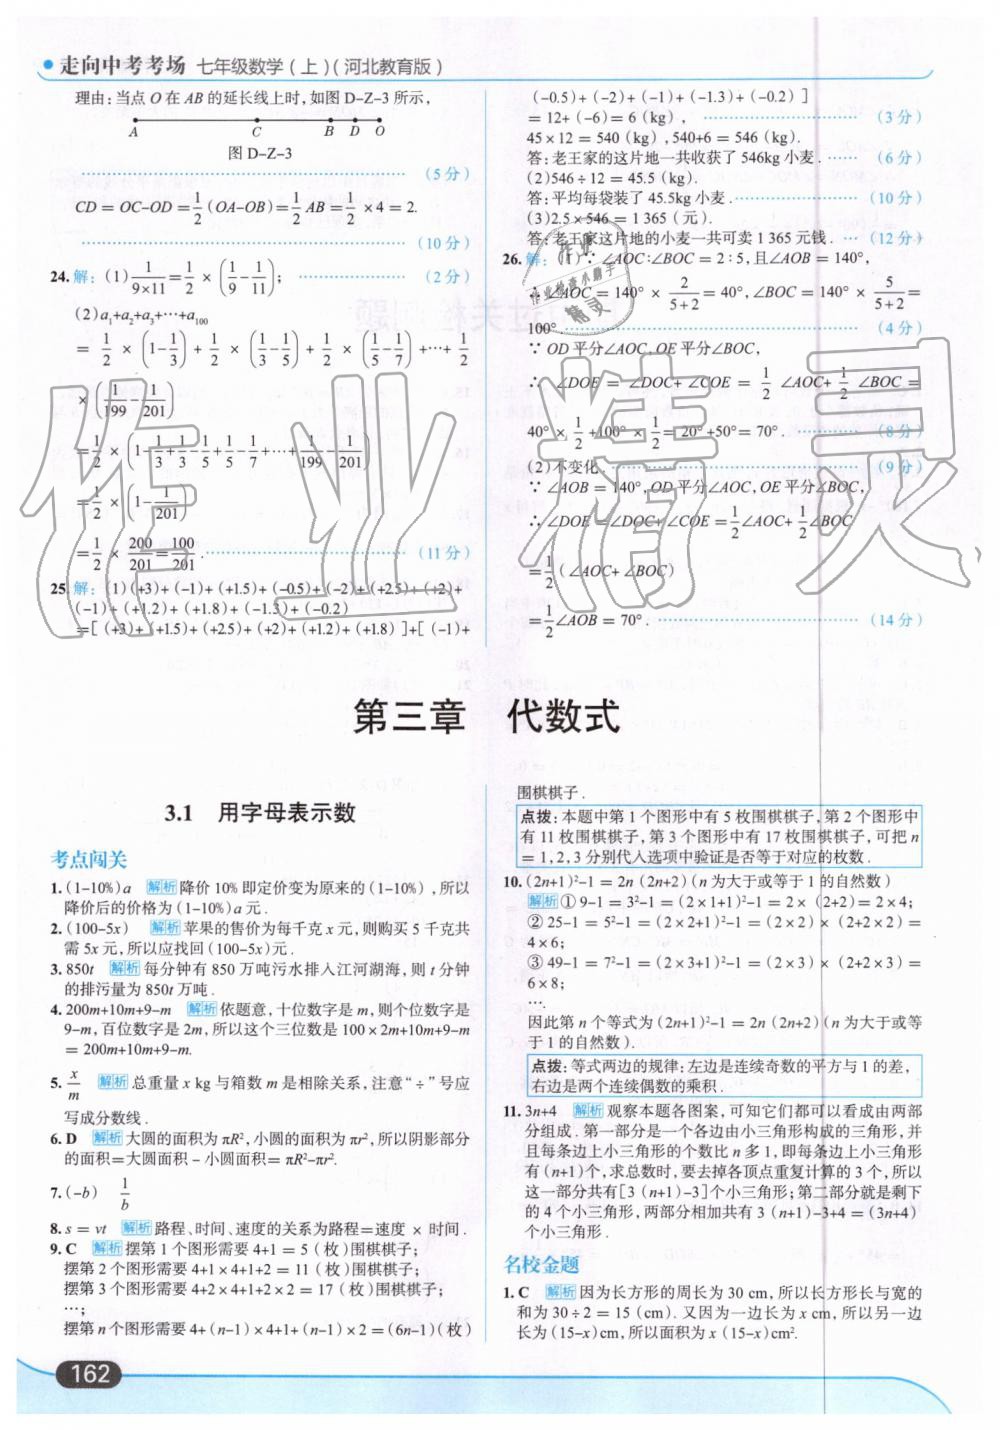 走向中考考场 七年级数学(上)(河北教育版)
理由:当点O在AB的延长线上时,如图D-Z-3所示,
A C B D O
图D-Z-3
(5分)
CD = OC-OD = 1/2 (OA-OB)= 1/2 AB = 1/2 ×4 = 2.
(10分)
24.解:(1) 1/(9×11) = 1/2 × (1/9 - 1/11); (2分)
(2)a₁+a₂+a₃+…+a₁₀₀
= 1/2 × (1-1/3) + 1/2 × (1/3-1/5) + 1/2 × (1/5-1/7) +…+ 1/2
× (1/199 - 1/201)
= 1/2 × (1-1/3+1/3-1/5+1/5-1/7+…+1/199-1/201)
= 1/2 × (1-1/201)
= 1/2 × 200/201 = 100/201. (11分)
25.解:(1)(+3)+(-1)+(+1.5)+(-0.5)+(-2)+(+2.5)+(+2)+
(-1)+(+1.2)+(+1.8)+(-1.3)+(-0.2)
=[(+3)+(+1.5)+(+2.5)+(+2)+(+1.2)+(+1.8)]+[(-1)+
(-0.5)+(-2)+(-1)+(-1.3)+(-0.2)]
= 12+(-6)= 6(kg), (3分)
45×12 = 540(kg),540+6 = 546(kg).
答:老王家的这片地一共收获了546kg小麦. (6分)
(2)546÷12 = 45.5(kg).
答:平均每袋装了45.5kg小麦. (10分)
(3)2.5×546 = 1 365(元).
答:老王家这片地的小麦一共可卖1 365元钱. (12分)
26.解:(1)∵∠AOC:∠BOC = 2:5,且∠AOB = 140°,
∴∠AOC = 140° × 2/(5+2) = 40°,∠BOC = 140° × 5/(5+2) =
100°. (4分)
∵OD平分∠AOC,OE平分∠BOC,
∴∠DOE = ∠DOC+∠COE = 1/2 ∠AOC+ 1/2 ∠BOC =
40°× 1/2 +100°× 1/2 = 20°+50°= 70°. (8分)
(2)不变化. (9分)
∵∠AOB = 140°,OD平分∠AOC,OE平分∠BOC,
∴∠DOE = ∠DOC+∠COE = 1/2 ∠AOC+ 1/2 ∠BOC
= 1/2 (∠AOC+∠BOC)
= 1/2 ∠AOB = 70°. (14分)
第三章 代数式
3.1 用字母表示数
考点闯关
1.(1-10%)a 解析 降价10%即定价变为原来的(1-10%),所以
降价后的价格为(1-10%)a元.
2.(100-5x) 解析 苹果的售价为每千克x元,则购买5千克共
需5x元,所以应找回(100-5x)元.
3.850t 解析 每分钟有850万吨污水排入江河湖海,则t分钟
的排污量为850t万吨.
4.200m+10m+9-m 解析 依题意,十位数字是m,则个位数字是
9-m,百位数字是2m,所以这个三位数是100×2m+10m+9-m
= 200m+10m+9-m.
5. x/m 解析 总重量x kg与箱数m是相除关系,注意“÷”号应
写成分数线.
6.D 解析 大圆的面积为πR²,小圆的面积为πr²,所以阴影部分
的面积=大圆面积-小圆面积= πR²-πr².
7.(-b) 1/b
8.s = vt 解析 路程、时间、速度的关系为路程=速度×时间.
9.C 解析 摆第1个图形需要4+1 = 5(枚)围棋棋子;
摆第2个图形需要4+1×4+1+2 = 11(枚)围棋棋子;
摆第3个图形需要4+2×4+1+2×2 = 17(枚)围棋棋子;
…;
摆第n个图形需要4+(n-1)×4+1+(n-1)×2 =(6n-1)(枚)
围棋棋子.
点拨:本题中第1个图形中有5枚围棋棋子,第2个图形中
有11枚围棋棋子,第3个图形中有17枚围棋棋子,可把n
= 1,2,3分别代入选项中验证是否等于对应的枚数.
10.(2n+1)²-1 = 2n(2n+2)(n为大于或等于1的自然数)
解析 ①9-1 = 3²-1 =(2×1+1)²-1 = 2×(2+2)= 2×4;
②25-1 = 5²-1 =(2×2+1)²-1 =(2×2)×(2×2+2)=
4×6;
③49-1 = 7²-1 =(2×3+1)²-1 =(2×3)×(2×2×3)=
6×8;
….
因此第n个等式为(2n+1)²-1 = 2n(2n+2)(n为大于或等
于1的自然数).
点拨:等式两边的规律:左边是连续奇数的平方与1的差,
右边是两个连续偶数的乘积.
11.3n+4 解析 观察本题各图案,可知它们都可以看成由两部
分组成.第一部分是一个各边由小三角形构成的三角形,并
且每条边上小三角形的个数比n多1,即每条边上小三角形
有(n+1)个,求总数时,要去掉各顶点重复计算的3个,所以
这一部分共有[3(n+1)-3]个小三角形;第二部分就是剩下
的4个小三角形,两部分相加共有3(n+1)-3+4 =(3n+4)
个小三角形.
名校金题
1.C 解析 因为长方形的周长为30 cm,所以长方形长与宽的
和为30÷2 = 15(cm).又因为一边长为x cm,所以另一边
长为(15-x)cm,所以面积为x(15-x)cm².
162
作业精灵